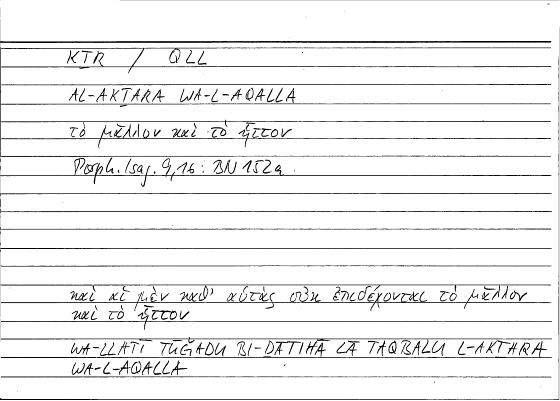 KṮR / QLL
AL-AKṮARA WA-L-AQALLA
τὸ μᾶλλον καὶ τὸ ἧττον
Porph. Isag. 9,16: BN 152a
καὶ αἱ μὲν καθ' αὑτὰς οὐκ ἐπιδέχονται τὸ μᾶλλον
καὶ τὸ ἧττον
WA-LLATĪ TŪǦADU BI-ḎĀTIHĀ LĀ TAQBALU L-AKṮARA
WA-L-AQALLA